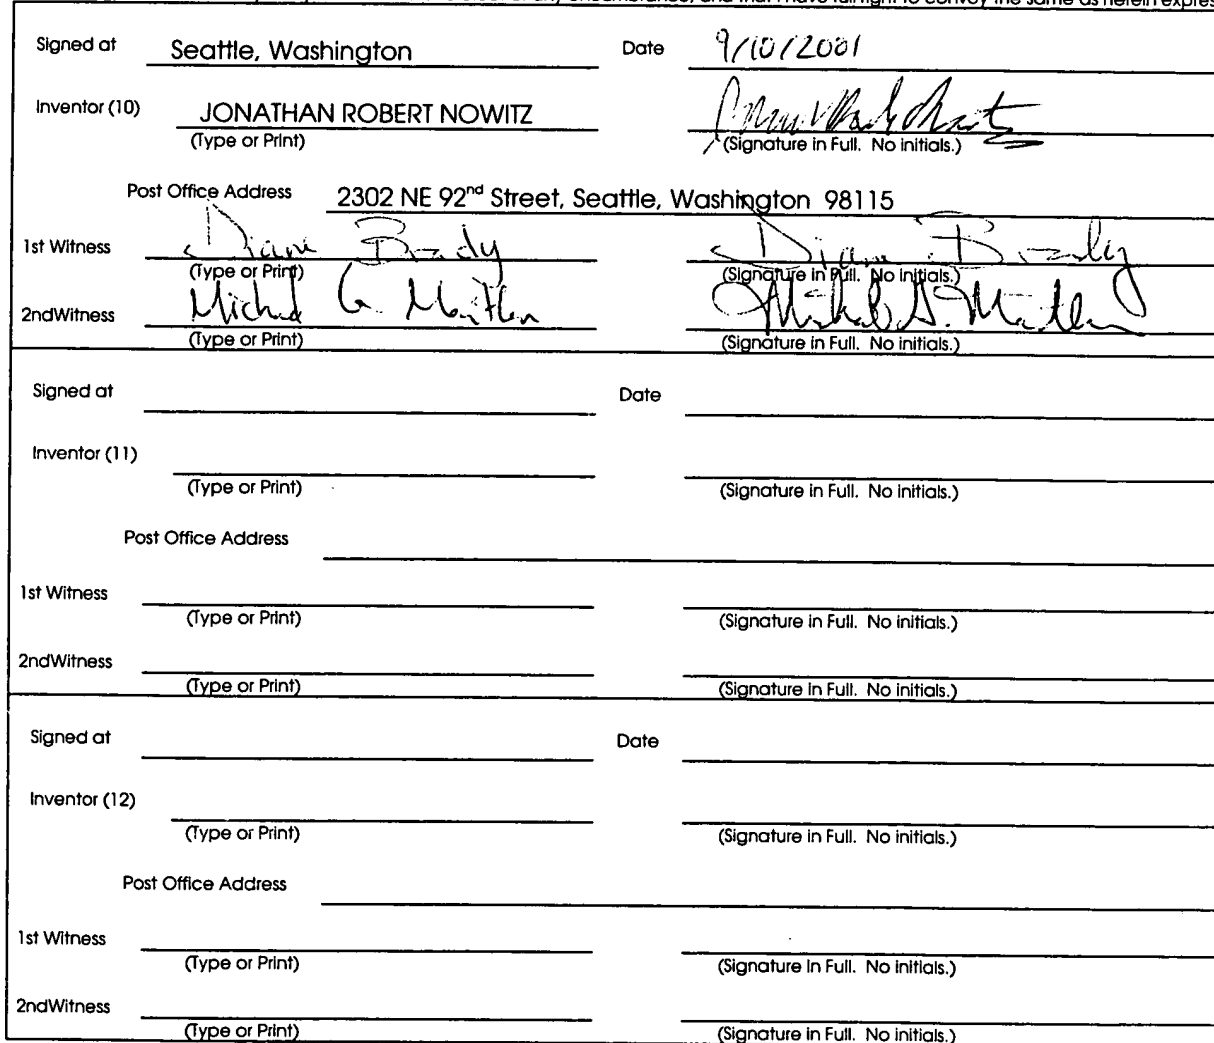 and that I have full right to convoy the same as herein expres
Signed at Seattle, Washington Date 9/10/2001
Inventor (10) JONATHAN ROBERT NOWITZ
(Type or Print) (Signature in Full. No initials.)
Post Office Address 2302 NE 92nd Street, Seattle, Washington 98115
1st Witness Diane Brady Diane Brady
(Type or Print) (Signature in Full. No initials.)
2ndWitness Michael G.
(Type or Print) (Signature in Full. No initials.)
Signed at Date
Inventor (11)
(Type or Print) (Signature in Full. No initials.)
Post Office Address
1st Witness
(Type or Print) (Signature in Full. No initials.)
2ndWitness
(Type or Print) (Signature in Full. No initials.)
Signed at Date
Inventor (12)
(Type or Print) (Signature in Full. No initials.)
Post Office Address
1st Witness
(Type or Print) (Signature in Full. No initials.)
2ndWitness
(Type or Print) (Signature in Full. No initials.)